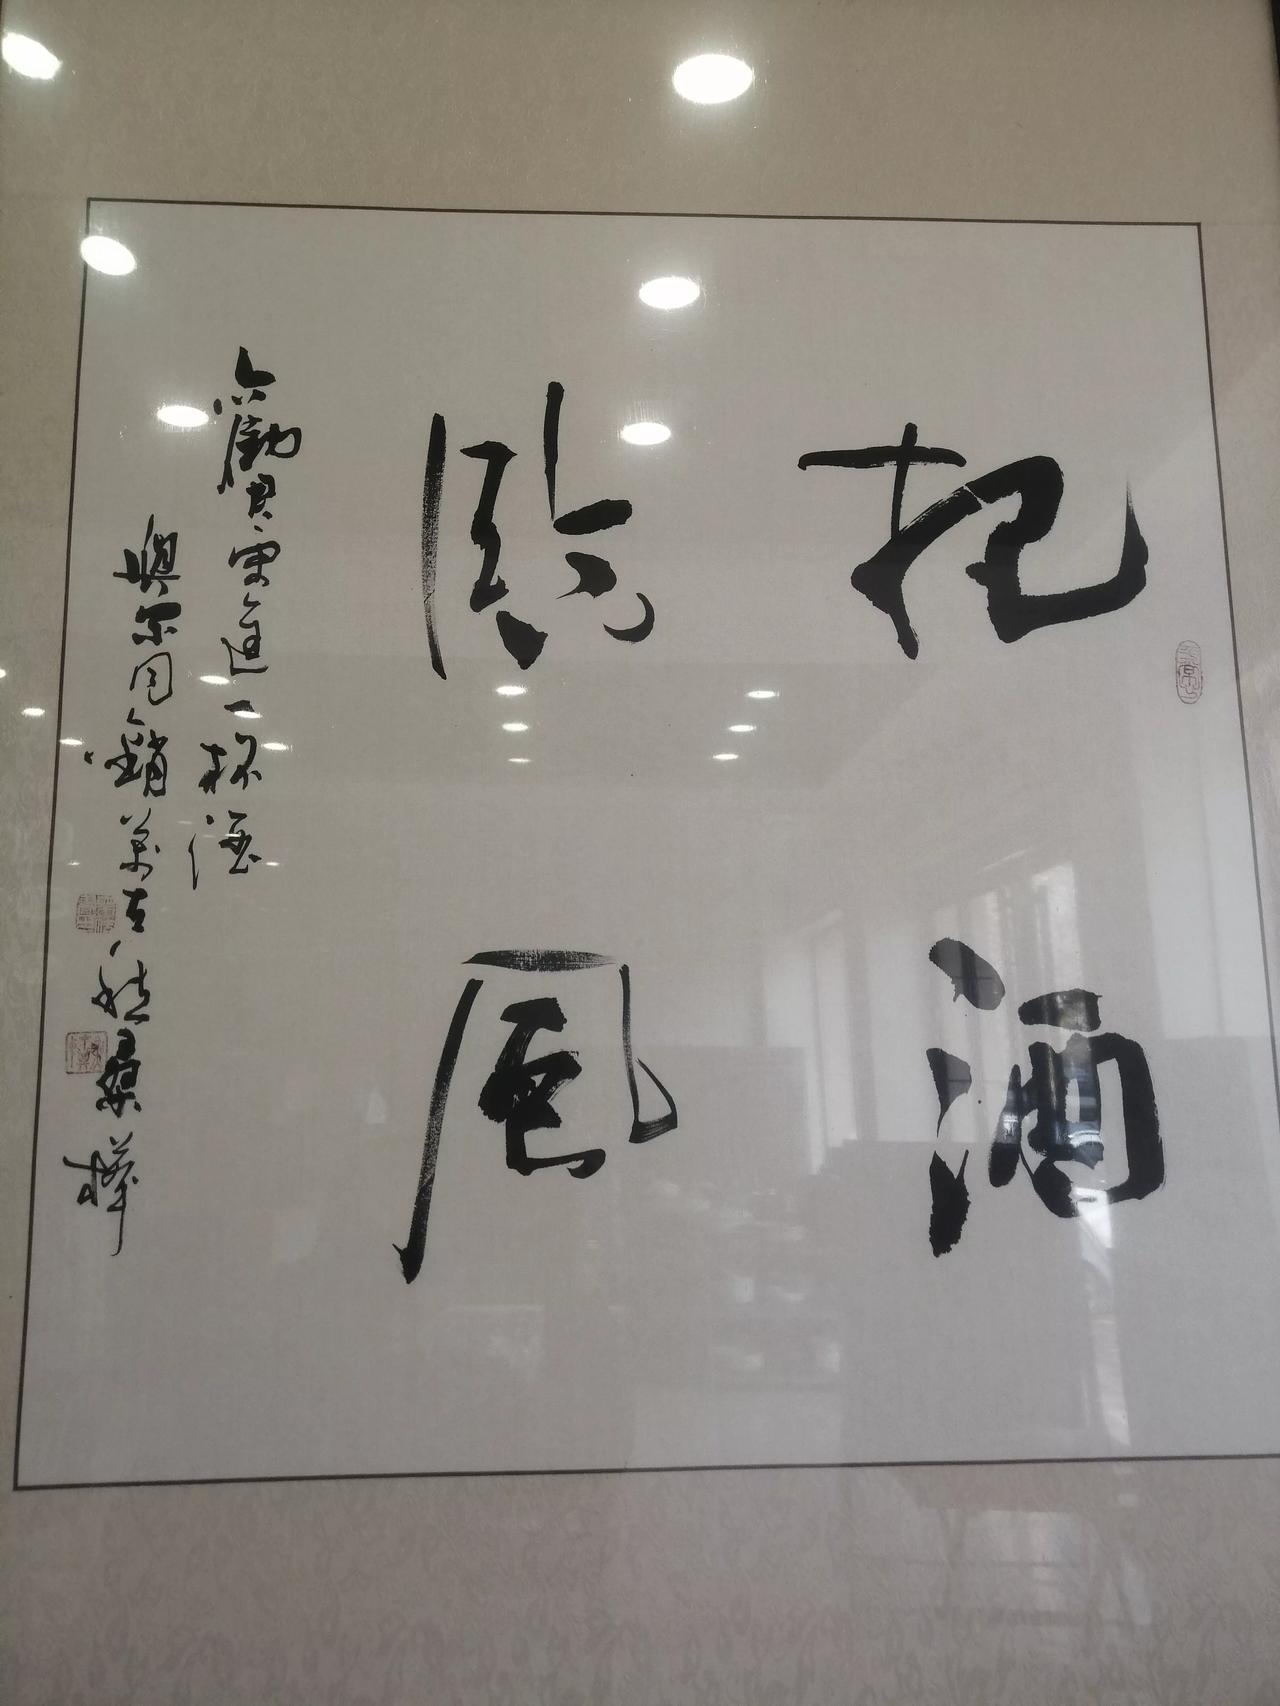 把酒
臨風
勸君更進一杯酒
與爾同銷萬古愁 桑樺